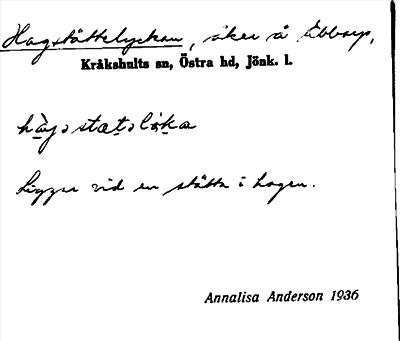 Hagstättelyckan, åker å Äbbarp,
Kråkshults sn, Östra hd, Jönk. l.
Ligger vid en stätta i hagen.
Annalisa Anderson 1936